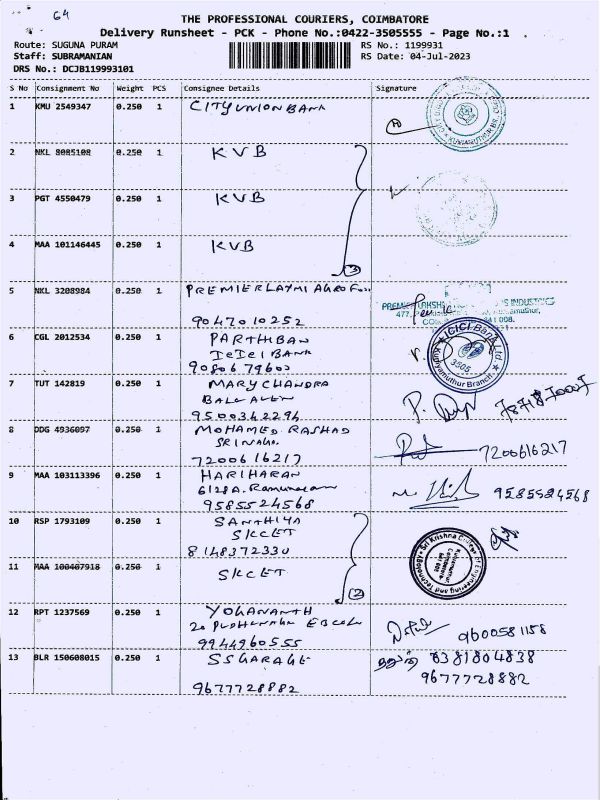 64
THE PROFESSIONAL COURIERS, COIMBATORE
Delivery Runsheet - PCK - Phone No.:0422-3505555 - Page No.:1
Route: SUGUNA PURAM
RS No.: 1199931
Staff: SUBRAMANIAN
RS Date: 04-Jul-2023
DRS No.: DCJB119993101
S No Consignment No Weight PCS Consignee Details Signature
1 KMU 2549347 0.250 1 CITYUNION BANK
2 NKL 8085108 0.250 1 KVB
3 PGT 4550479 0.250 1 KVB
4 MAA 101146445 0.250 1 KVB
3
5 NKL 3208984 0.250 1 PREMIER LAXMI AGRO
9047010252
6 CGL 2012534 0.250 1 PARTHIBAN
ICICI Bank Ltd.
Kuniyamuthur Branch
3505
BANK
9080679602
7 TUT 142819 0.250 1 MARY CHANDRA
9500342294
8 DDG 4936097 0.250 1 MOHAMED RASHAD
SRINAGA.
7200616217
7200616217
9 MAA 103113396 0.250 1 HARIHARAN
9585524568
9585524568
10 RSP 1793109 0.250 1 SANTHIYA
SKCET
8148372330
Sri Krishna College of Engineering and Technology
11 MAA 100407918 0.250 1 SKCET
2
12 RPT 1237569 0.250 1 YOGANANTH
9944960555
9600581158
13 BLR 150608015 0.250 1 SSGARAGE
8381804838
9677728882
9677728882